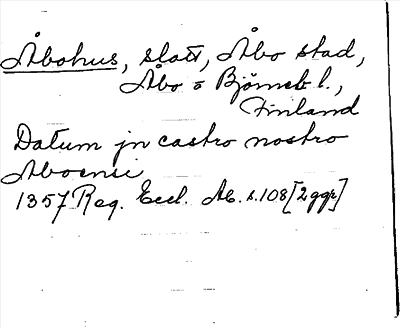 Åbohus, slott, Åbo stad,
Åbo o Björneb l.,
Finland
Datum jn castro nostro
Aboensi
1357 Reg. Eccl. Ab. s. 108 [2 ggr]